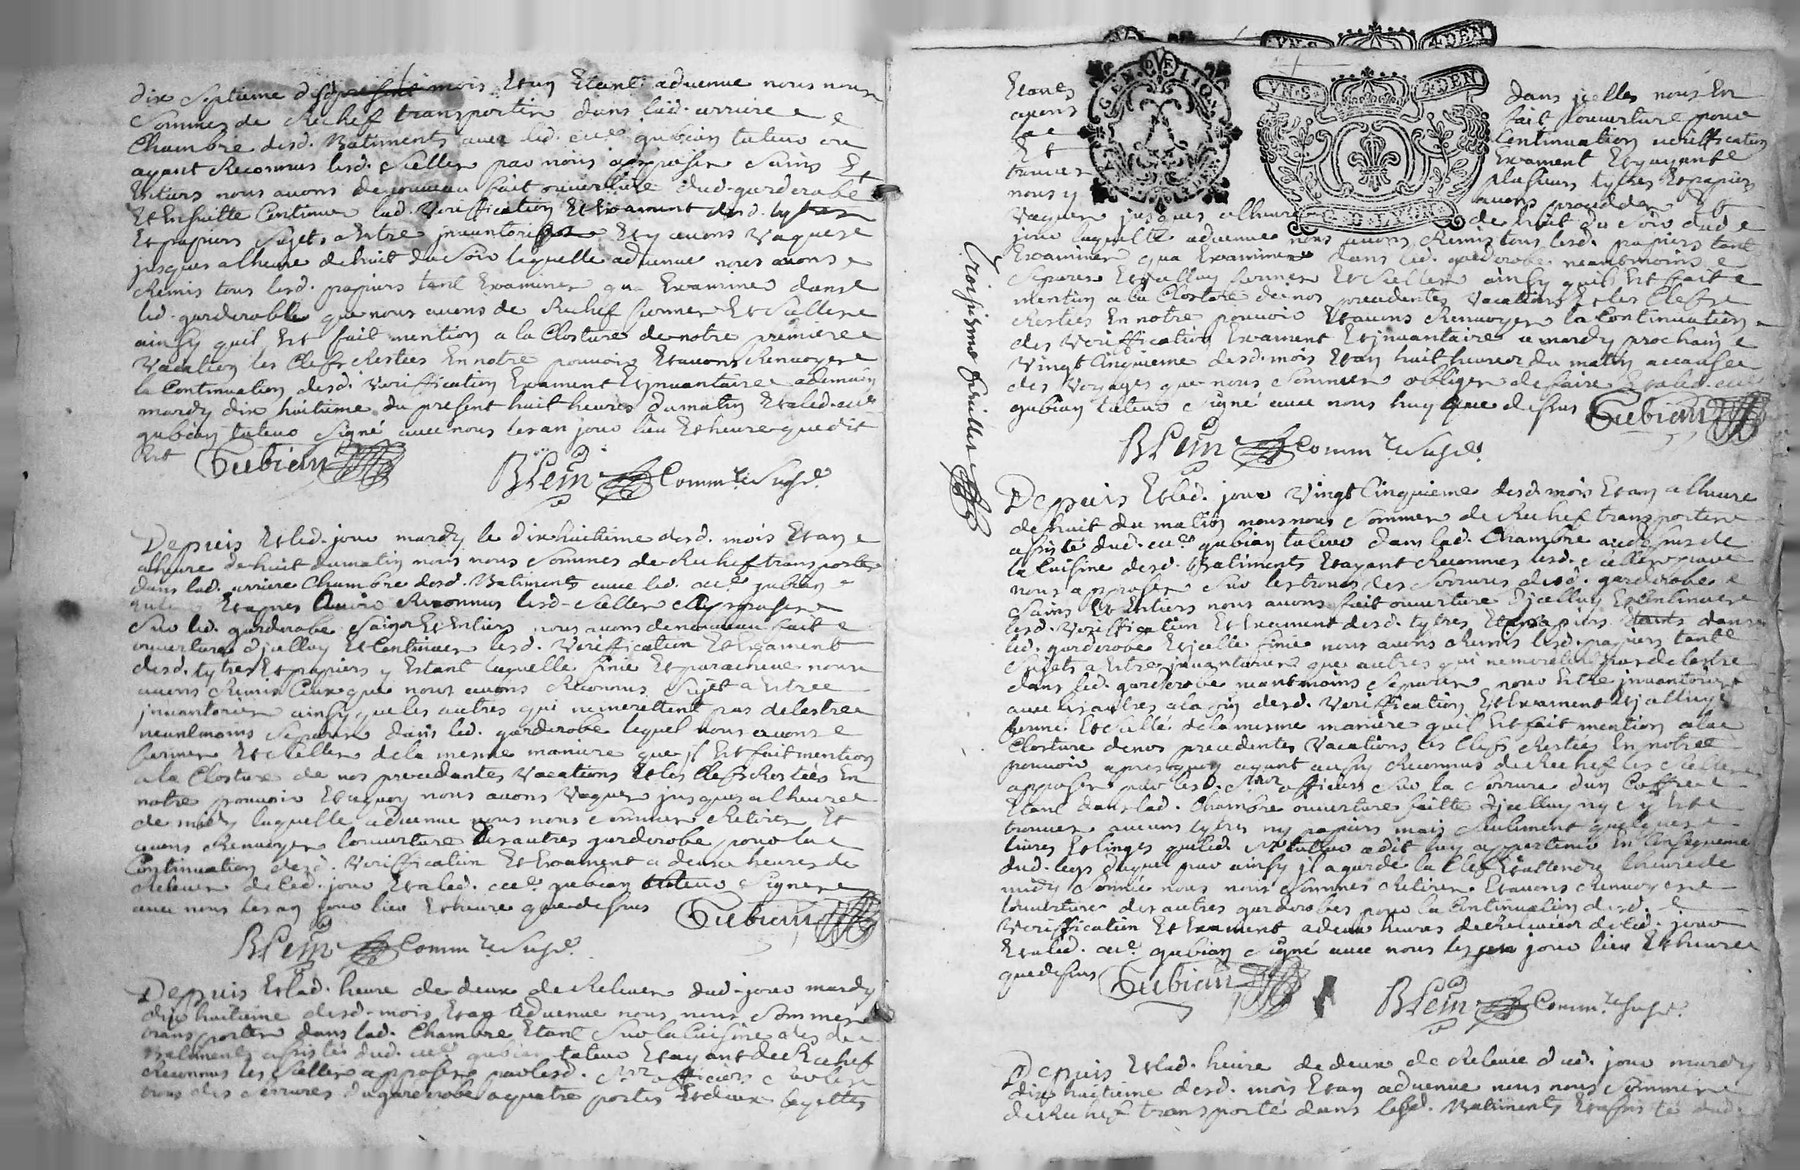 dix septieme desd. present mois Et an Estant advenue nous nous
Sommes de Rechef transportes dans lad. arriere
Chambre desd. Batiments avec led. Me gubian tuteur ou
ayant Reconnus lesd. scelles par nous apposes Sains Et
Entiers nous avons de nouveau fait ouverture dud. garderobe
Et En suitte Continue lad. Veriffication Et Exament desd. tytres
Et papiers Sujets a Estre jnvantories Et y avons Vaques
jusques a lheure de huit du Soir laquelle advenue nous avons
Remis tous lesd. papiers tant Examines qua Examiner dans
led. garderobe que nous avons de Rechef fermer Et Sceller
ainsy quil Est fait mention a la Closture de notre premiere
Vacation les Clefs Restées En notre pouvoir Et avons Renvoyer
la Continuation desd. Veriffication Exament Et jnvantaire a demain
mardy dix huitieme du present huit heures du matin Et a led. Me
gubian tuteur Signé avec nous les an jour lieu Et heure que dit
Est Gubian
BLein Commre Susd.
Depuis Et led. jour mardy le dix huitieme desd. mois Et an
a lheure de huit du matin nous nous Sommes de Rechef transportes
dans lad. arriere Chambre desd. Batiments avec led. Me gubian
Et apres avoir Reconnus lesd. scelles apposes
Sur led. garderobe Sains Et Entiers nous avons de nouveau fait
ouverture djcelluy Et Continues lesd. Veriffication Et Exament
desd. tytres Et papiers y Estant laquelle finie Et parachevee nous
avons Remis Ceux que nous avons Reconnus Sujet a Estre
jnvantories ainsy que les autres qui ne meritent pas de lestre
neantmoins Separes dans led. garderobe lequel nous avons
fermer Et Sceller de la mesme maniere que jl Est fait mention
a la Closture de nos precedantes Vacations Et les Clefs Restées En
notre pouvoir Et a quoy nous avons Vaquer jusques a lheure
de midy laquelle advenue nous nous Sommes Retires Et
avons Renvoyer louverture des autres garderobe pour la
Continuation desd. Veriffication Et Exament a deux heures de
Relevee de led. jour Et a led. Me gubian tuteur Signer
avec nous les an jour lieu Et heure que dessus Gubian
BLein Commre Susd.
Depuis Et lad. heure de deux de Relevee dud. jour mardy
dix huitieme desd. mois Et an advenue nous nous Sommes
transportes dans lad. Chambre Estant Sur la Cuisine desd.
Batiments assisté dud. Me gubian tuteur Et ayant de Rechef
Reconnus les scelles apposes par lesd. Srs officiers Sur les
trous des serrures du garderobe a quatre portes Et deux layettes
GEN. DE LION
VN. S. 4. DEN
G. D. LYON
Estants dans jcelles nous En
avons fait louverture pour
la Continuation veriffication
Et Exament Et y ayant
trouver plusieurs tytres Et papiers
nous y avons proceddes Et
Vaquer jusques a lheure de huit du Soir dud.
jour laquelle advenue nous avons Remis tous lesd. papiers tant
Examines qua Examiner dans led. garderobe neantmoins
Separes Et jcelluy fermer Et Sceller ainsy quil Est fait
mention a la Closture de nos precedentes Vacations Et les Clefs
Restées En notre pouvoir Et avons Renvoyer la Continuation
des Veriffication Exament Et jnvantaire a mardy prochain
Vingt Cinquieme desd. mois Et an huit heures du matin a cause
des Voyages que nous Sommes obliges de faire Et a led. Me
gubian tuteur Signé avec nous que dessus Gubian
BLein Commre Susd.
Troisieme feuillet
Depuis Et led. jour Vingt Cinquieme desd. mois Et an a lheure
de huit du matin nous nous Sommes de Rechef transportes
assisté dud. Me gubian tuteur dans lad. Chambre au dessus de
la Cuisine desd. Batiments Et ayant Reconnus lesd. scelles par
nous apposes Sur les trous des Serrures desd. garderobe
Sains Et Entiers nous avons fait ouverture djcelluy Et Continues
lesd. Veriffication Et Exament desd. tytres Et papiers Estants dans
led. garderobe Et jcelle finie nous avons Remis lesd. papiers tant
Sujets a Estre jnvantories que autres qui ne meritent pas de lestre
dans led. garderobe neantmoins Separes pour Estre jnvantories
avec les autres a la fin desd. Veriffication Et Exament Et jcelluy
fermé Et Scellé de la mesme maniere quil Est fait mention a la
Closture de nos precedentes Vacations les Clefs Restées En notre
pouvoir apres quoy ayant aussy Reconnus de Rechef les scelles
apposes par lesd. Srs officiers Sur la Serrure dun Coffre
Estant dans lad. Chambre ouverture faitte djcelluy ny y Estre
trouver aucuns tytres ny papiers mais Seulement quelques
livres Et linges que led. Sr tuteur a dit luy appartenir En Consequence
dud. legs duquel par ainsy jl a garde la Clef Et attendu lheure de
midy Sonnee nous nous Sommes Retires Et avons Renvoyer
louverture des autres garderobes pour la Continuation desd.
Veriffication Et Exament a deux heures de Relevee de led. jour
Et a led. Me gubian Signé avec nous les an jour lieu Et heure
que dessus Gubian
BLein Commre Susd.
Depuis Et lad. heure de deux de Relevee dud. jour mardy
dix huitieme desd. mois Et an advenue nous nous Sommes
de Rechef transporté dans lesd. Batiments Et assisté dud.